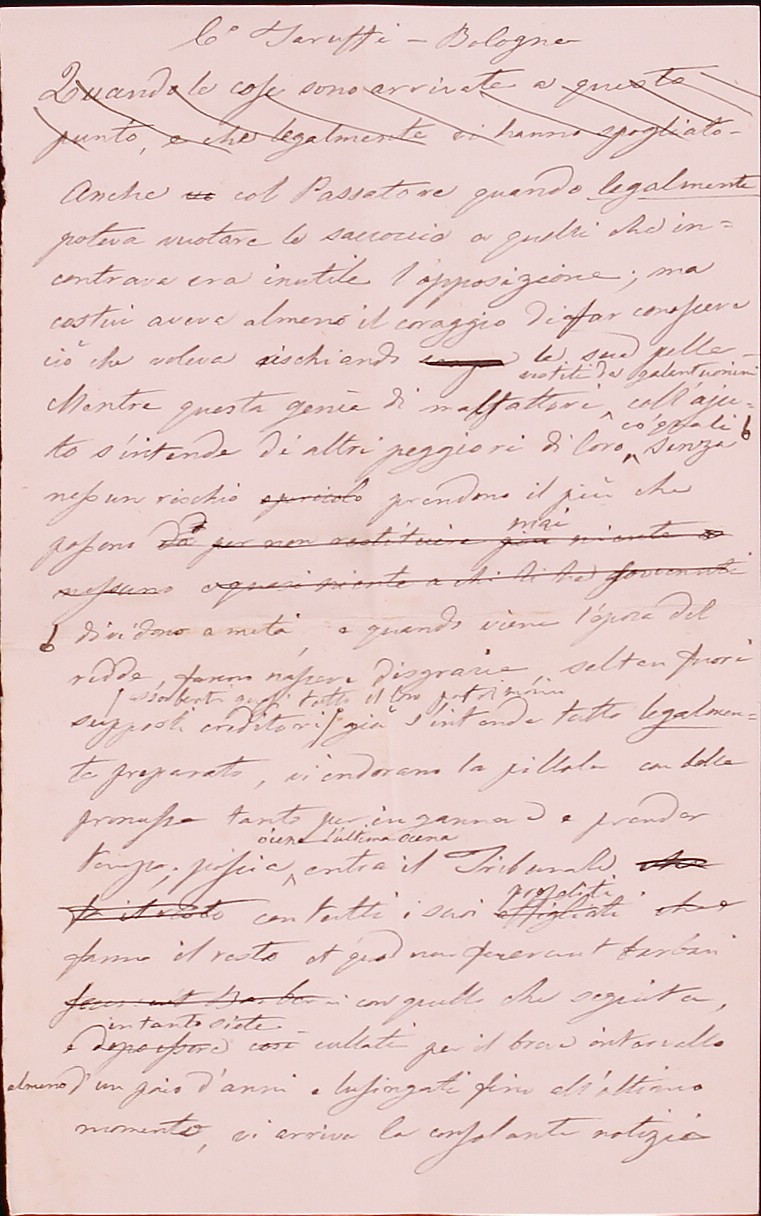 C.e Taruffi - Bologna
Quando le cose sono arrivate a questo
punto, e che legalmente vi hanno spogliato -
Anche col Passatore quando legalmente
poteva vuotare le saccoccie a quelli che in=
contrava era inutile l'opposizione; ma
costui aveva almeno il coraggio di far conoscere
ciò che voleva rischiando la sua pelle -
vestiti da galantuomini
Mentre questa genìe di malfattori, coll'aju=
co'quali
to s'intende di altri peggiori di loro, senza
nessun rischio pericolo prendono il più che
mai
possono per non restituire più niente a
nessuno o quasi niente a chi li ha sovvenuti
dividono a metà, e quando viene l'epoca del
redde, fanno nascere disgrazie, saltan fuori
assorbenti quasi tutto il loro patrimonio
supposti creditori già s'intende tutto legalmen=
te preparato, vi indorano la pillola con delle
promesse tanto per ingannare e prender
viene l'ultima scena
tempo, poscia entra il Tribunale che
fa il resto con tutti i suoi affigliati che
proseliti
fanno il resto et quod non fecerunt barbari
fecerunt Barberini con quello che seguita,
intanto siete
e così cullati per il breve intervallo
almeno d'un paio d'anni e lusingati fino all'ultimo
momento, vi arriva la consolante notizia